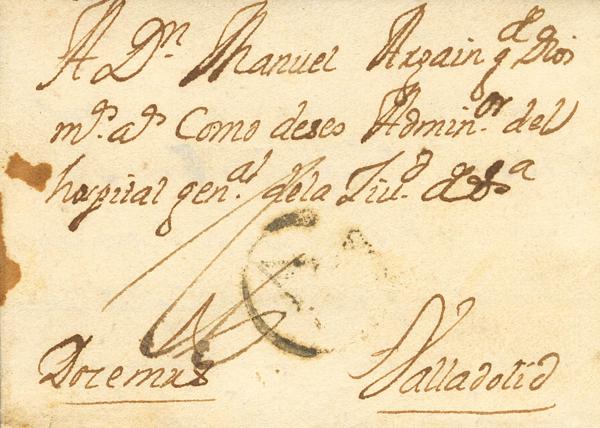 A Dn. Manuel Argain q Dios
ms. as. Como deseo Admin.or del
hospital gen.al de la Ziu.d de
Valladolid